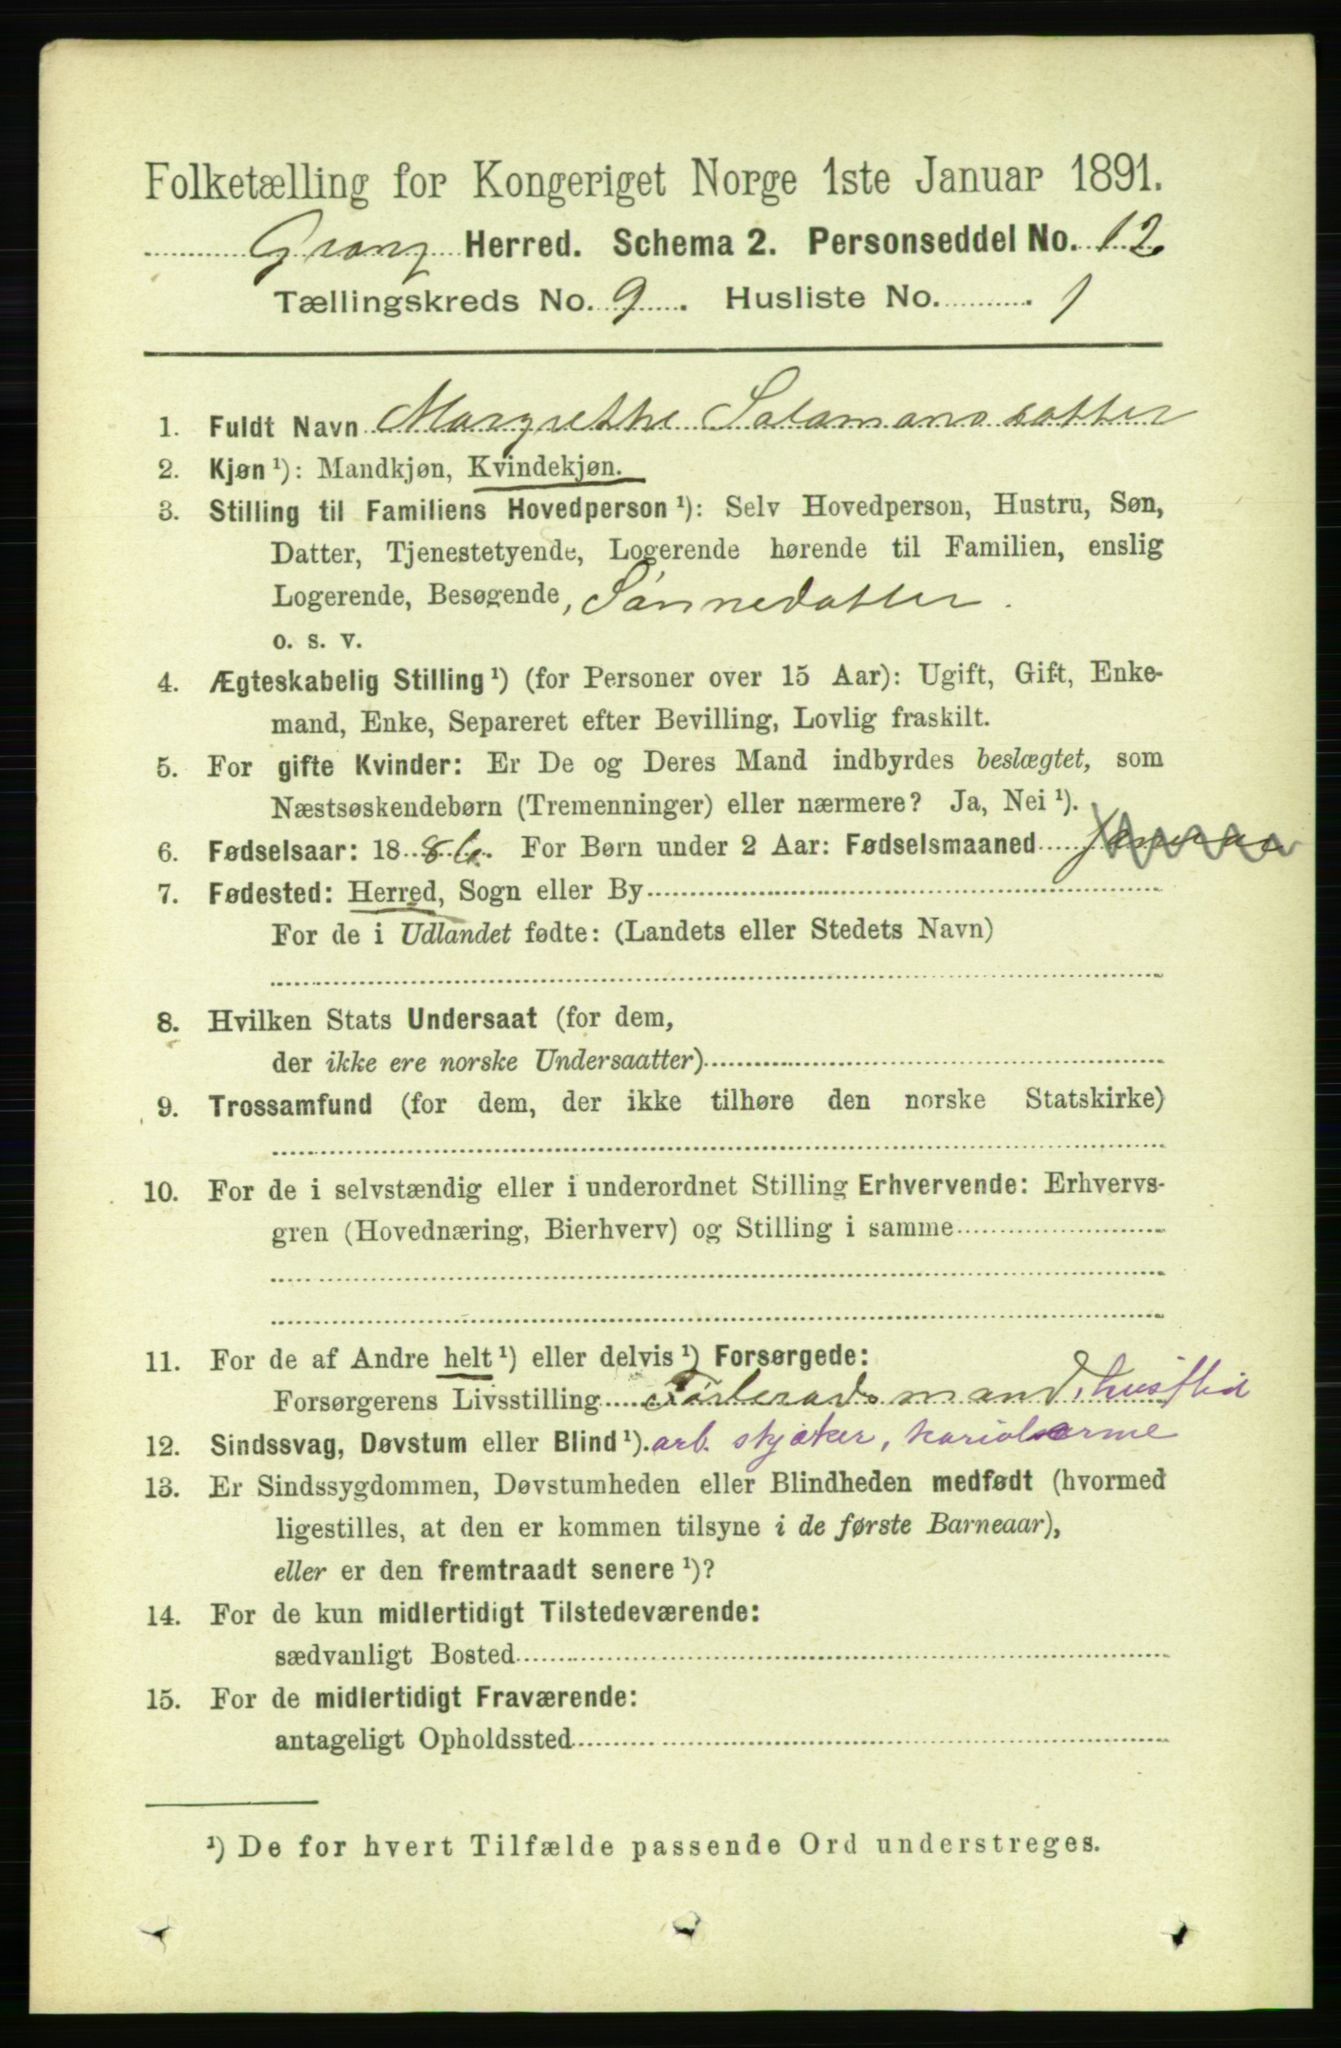 Folketælling for Kongeriget Norge 1ste Januar 1891.
Grong Herred. Schema 2. Personseddel No. 12.
Tællingskreds No. 9. Husliste No. 1
1. Fuldt Navn Margrethe Salamonsdatter
2. Kjøn ¹): Mandkjøn, Kvindekjøn.
3. Stilling til Familiens Hovedperson ¹): Selv Hovedperson, Hustru, Søn,
Datter, Tjenestetyende, Logerende hørende til Familien, enslig
Logerende, Besøgende, Sønnedatter.
o. s. v.
4. Ægteskabelig Stilling ¹) (for Personer over 15 Aar): Ugift, Gift, Enke-
mand, Enke, Separeret efter Bevilling, Lovlig fraskilt.
5. For gifte Kvinder: Er De og Deres Mand indbyrdes beslægtet, som
Næstsøskendebørn (Tremenninger) eller nærmere? Ja, Nei ¹).
6. Fødselsaar: 1886. For Børn under 2 Aar: Fødselsmaaned Januar
7. Fødested: Herred, Sogn eller By
For de i Udlandet fødte: (Landets eller Stedets Navn)
8. Hvilken Stats Undersaat (for dem,
der ikke ere norske Undersaatter)
9. Trossamfund (for dem, der ikke tilhøre den norske Statskirke)
10. For de i selvstændig eller i underordnet Stilling Erhvervende: Erhvervs-
gren (Hovednæring, Bierhverv) og Stilling i samme
11. For de af Andre helt ¹) eller delvis ¹) Forsørgede:
Forsørgerens Livsstilling Föderadsmand, husflid
12. Sindssvag, Døvstum eller Blind ¹). arb. skjæker, kariolarme
13. Er Sindssygdommen, Døvstumheden eller Blindheden medfødt (hvormed
ligestilles, at den er kommen tilsyne i de første Barneaar),
eller er den fremtraadt senere ¹)?
14. For de kun midlertidigt Tilstedeværende:
sædvanligt Bosted
15. For de midlertidigt Fraværende:
antageligt Opholdssted
¹) De for hvert Tilfælde passende Ord understreges.